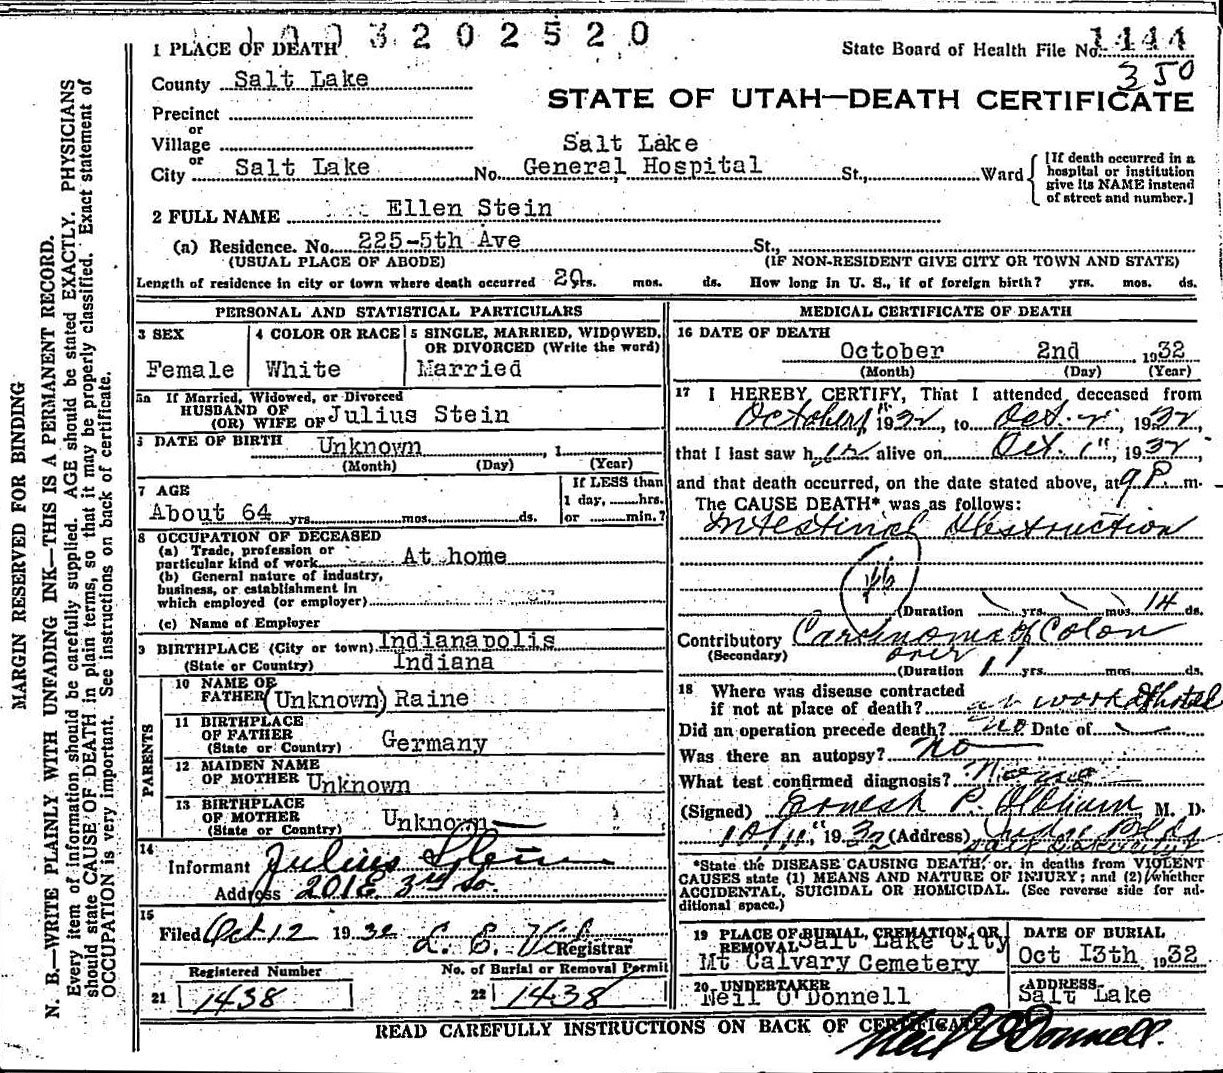 1003202520
1 PLACE OF DEATH
State Board of Health File No. 1444
350
County Salt Lake
STATE OF UTAH—DEATH CERTIFICATE
Precinct
or
Village
Salt Lake
or
City Salt Lake No. General Hospital St., Ward
[If death occurred in a
hospital or institution
give its NAME instead
of street and number.]
2 FULL NAME Ellen Stein
(a) Residence. No. 225-5th Ave St.,
(USUAL PLACE OF ABODE) (IF NON-RESIDENT GIVE CITY OR TOWN AND STATE)
Length of residence in city or town where death occurred 20 yrs. mos. ds. How long in U. S., if of foreign birth? yrs. mos. ds.
PERSONAL AND STATISTICAL PARTICULARS
3 SEX
Female
4 COLOR OR RACE
White
5 SINGLE, MARRIED, WIDOWED,
OR DIVORCED (Write the word)
Married
5a If Married, Widowed, or Divorced
HUSBAND OF
(OR) WIFE OF Julius Stein
6 DATE OF BIRTH Unknown , 1
(Month) (Day) (Year)
7 AGE
About 64 yrs. mos. ds.
If LESS than
1 day, hrs.
or min.?
8 OCCUPATION OF DECEASED
(a) Trade, profession or
particular kind of work At home
(b) General nature of industry,
business, or establishment in
which employed (or employer)
(c) Name of Employer
9 BIRTHPLACE (City or town) Indianapolis
(State or Country) Indiana
PARENTS
10 NAME OF
FATHER (Unknown) Raine
11 BIRTHPLACE
OF FATHER
(State or Country) Germany
12 MAIDEN NAME
OF MOTHER Unknown
13 BIRTHPLACE
OF MOTHER
(State or Country) Unknown
14
Informant Julius Stein
Address 201 E 3rd So.
15
Filed Oct 12 1932 L. E.
Registrar
Registered Number
21 1438
No. of Burial or Removal Permit
22 1438
MEDICAL CERTIFICATE OF DEATH
16 DATE OF DEATH
October 2nd 1932
(Month) (Day) (Year)
17 I HEREBY CERTIFY, That I attended deceased from
October 1" 1932, to Oct. 2", 1932,
that I last saw her alive on Oct. 1", 1932,
and that death occurred, on the date stated above, at 9 P. m.
The CAUSE DEATH* was as follows:
Intestinal Obstruction
(Duration yrs. mos. 14 ds.
Contributory Carcinoma of Colon
(Secondary) over
(Duration 1 yrs. mos. ds.
18 Where was disease contracted
if not at place of death? at work at hotel
Did an operation precede death? No Date of
Was there an autopsy? No
What test confirmed diagnosis?
(Signed) Ernest P. M. D.
1932 (Address) Judge Bldg
Salt Lake City
*State the DISEASE CAUSING DEATH, or, in deaths from VIOLENT
CAUSES state (1) MEANS AND NATURE OF INJURY; and (2) whether
ACCIDENTAL, SUICIDAL OR HOMICIDAL. (See reverse side for ad-
ditional space.)
19 PLACE OF BURIAL, CREMATION, OR
REMOVAL Salt Lake City
Mt Calvary Cemetery
DATE OF BURIAL
Oct 13th 1932
20 UNDERTAKER
Neil O'Donnell
ADDRESS
Salt Lake
READ CAREFULLY INSTRUCTIONS ON BACK OF CERTIFICATE
Neil O'Donnell.
MARGIN RESERVED FOR BINDING
N. B.—WRITE PLAINLY WITH UNFADING INK—THIS IS A PERMANENT RECORD.
Every item of information should be carefully supplied. AGE should be stated EXACTLY. PHYSICIANS
should state CAUSE OF DEATH in plain terms, so that it may be properly classified. Exact statement of
OCCUPATION is very important. See instructions on back of certificate.